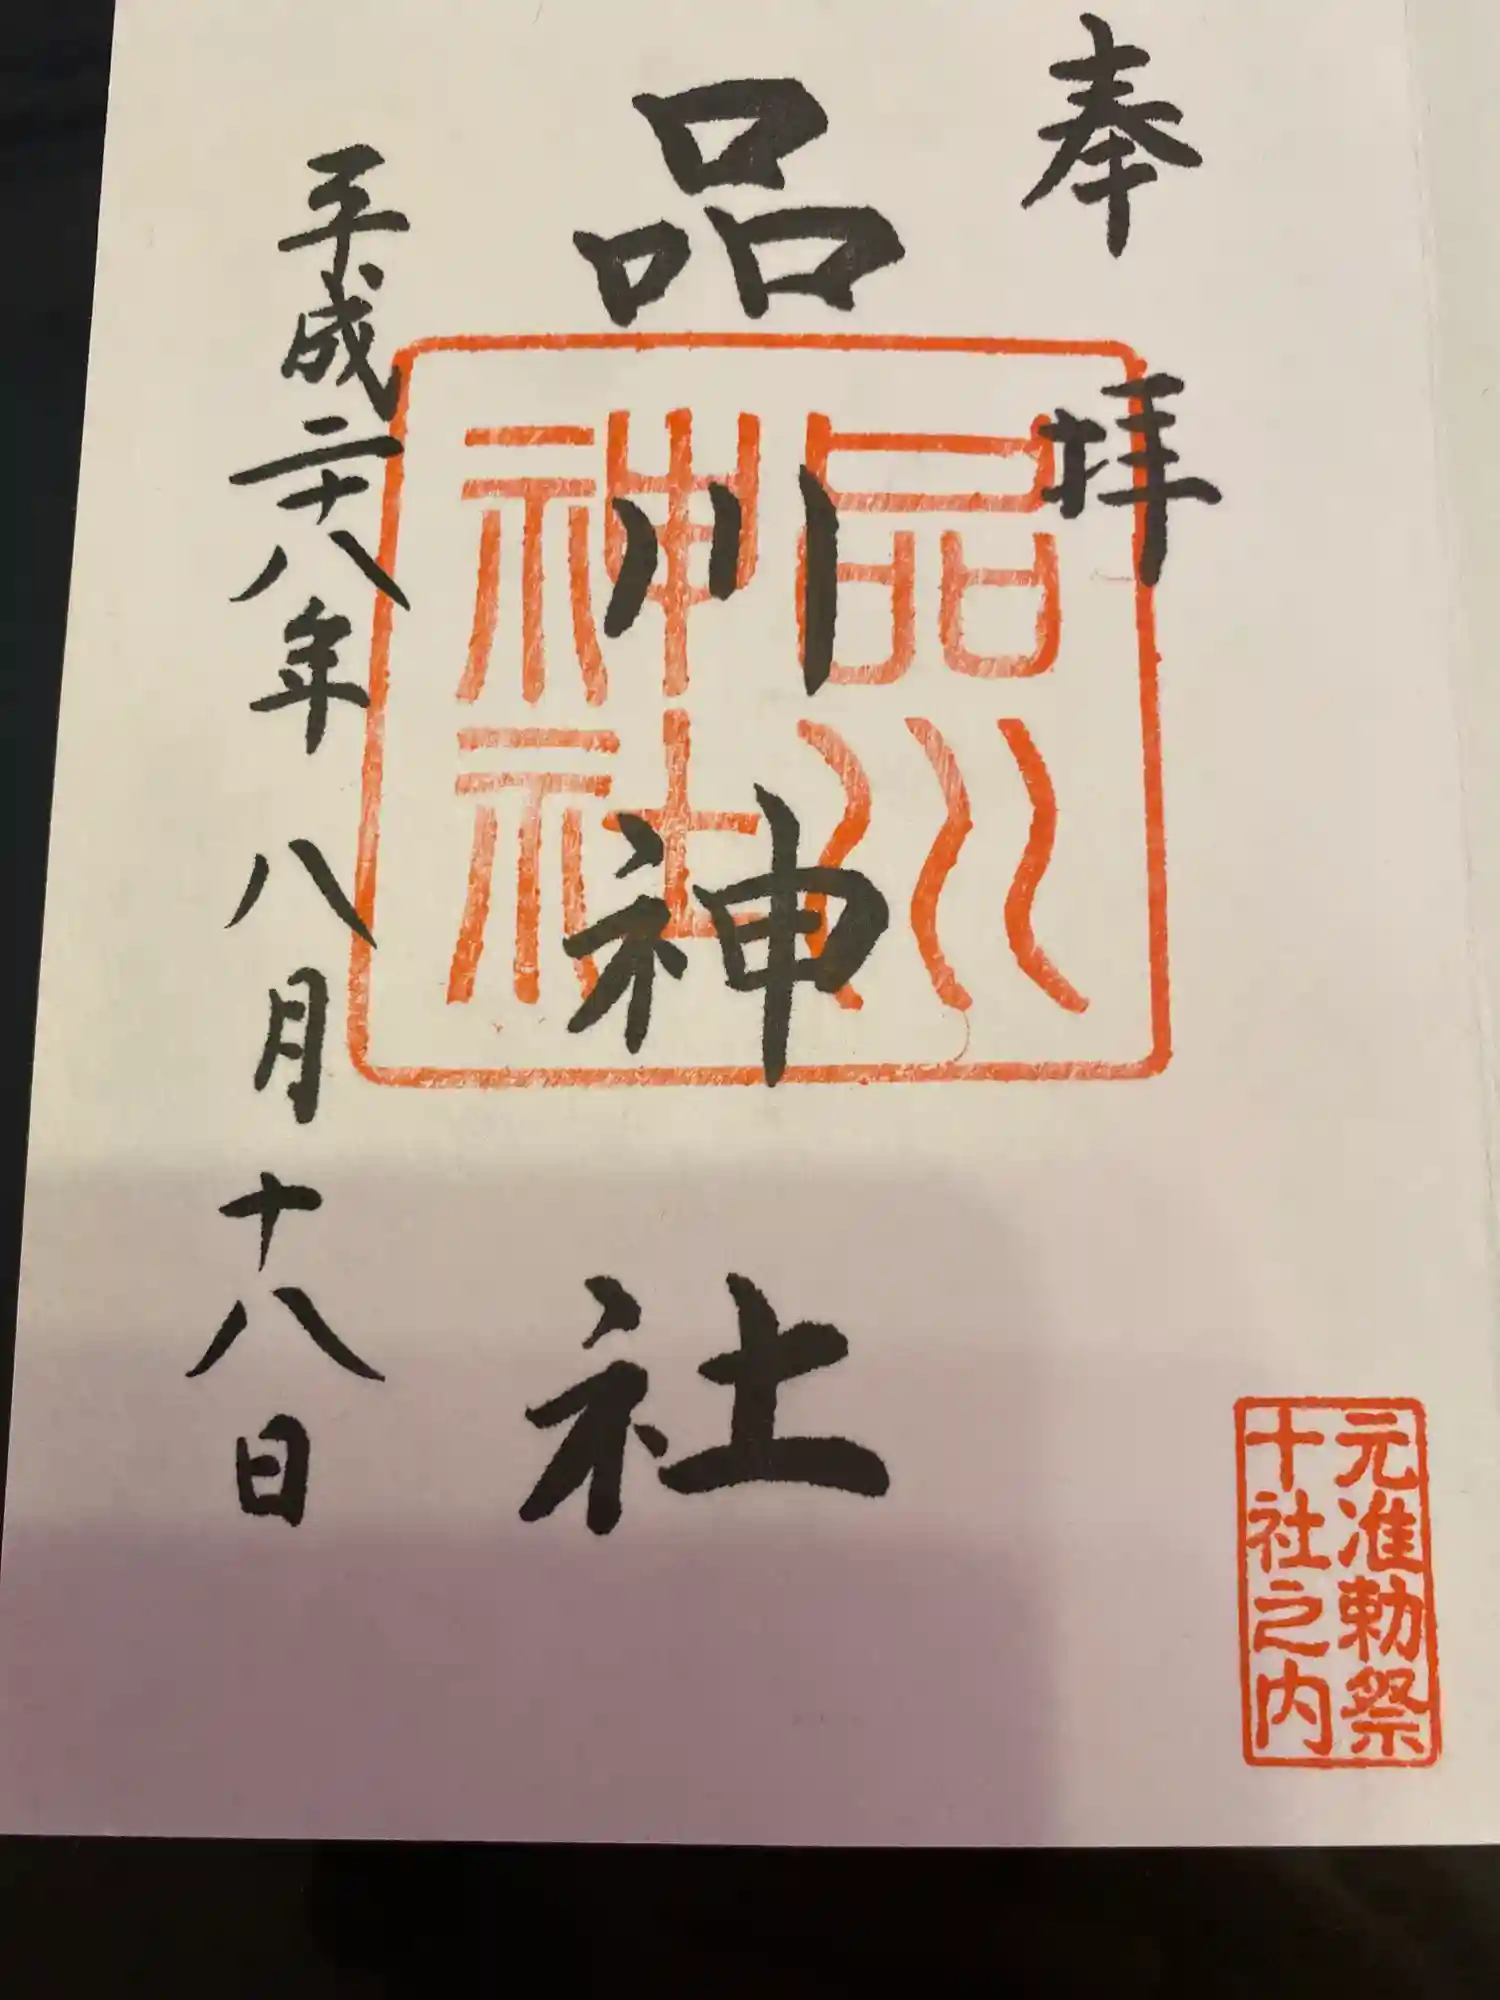 奉拝
品川神社
品川
神社
平成二十八年八月十八日
元准勅祭
十社之内